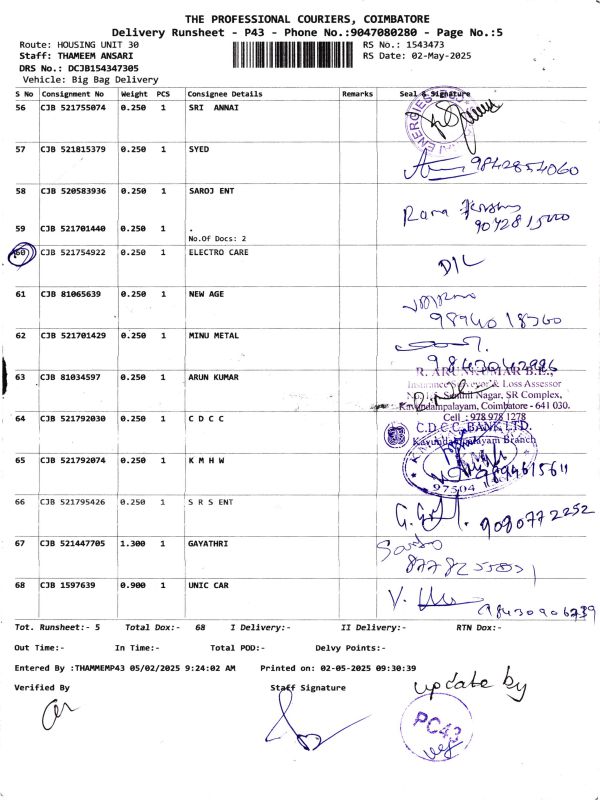 THE PROFESSIONAL COURIERS, COIMBATORE
Delivery Runsheet - P43 - Phone No.:9047080280 - Page No.:5
Route: HOUSING UNIT 30 RS No.: 1543473
Staff: THAMEEM ANSARI RS Date: 02-May-2025
DRS No.: DCJB154347305
Vehicle: Big Bag Delivery
S No Consignment No Weight PCS Consignee Details Remarks Seal & Signature
56 CJB 521755074 0.250 1 SRI ANNAI
ENERGIES
57 CJB 521815379 0.250 1 SYED
9842854060
58 CJB 520583936 0.250 1 SAROJ ENT
Rama
59 CJB 521701440 0.250 1 .
No.Of Docs: 2
60 CJB 521754922 0.250 1 ELECTRO CARE
D/L
61 CJB 81065639 0.250 1 NEW AGE
62 CJB 521701429 0.250 1 MINU METAL
63 CJB 81034597 0.250 1 ARUN KUMAR
R. ARUN KUMAR B.E.,
Insurance Surveyor & Loss Assessor
Nagar, SR Complex,
Kavundampalayam, Coimbatore - 641 030.
Cell : 978 978 1278
64 CJB 521792030 0.250 1 C D C C
C.D.C.C. BANK LTD.
Kavundampalayam Branch
65 CJB 521792074 0.250 1 K M H W
97504
66 CJB 521795426 0.250 1 S R S ENT
9080772252
67 CJB 521447705 1.300 1 GAYATHRI
68 CJB 1597639 0.900 1 UNIC CAR
Tot. Runsheet:- 5 Total Dox:- 68 I Delivery:- II Delivery:- RTN Dox:-
Out Time:- In Time:- Total POD:- Delvy Points:-
Entered By :THAMMEMP43 05/02/2025 9:24:02 AM Printed on: 02-05-2025 09:30:39
Verified By Staff Signature update by
PC43